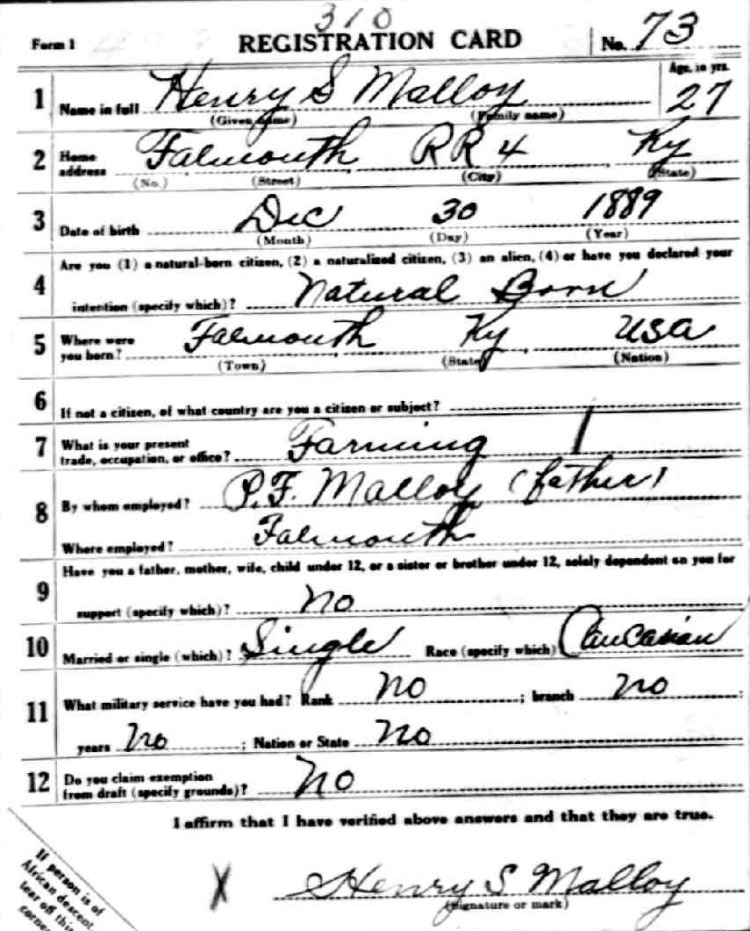 310
Form 1 REGISTRATION CARD No. 73
1 Name in full Henry S Malloy Age, in yrs. 27
(Given name) (Family name)
2 Home address Falmouth RR 4 Ky
(No.) (Street) (City) (State)
3 Date of birth Dec 30 1889
(Month) (Day) (Year)
4 Are you (1) a natural-born citizen, (2) a naturalized citizen, (3) an alien, (4) or have you declared your
intention (specify which)? Natural Born
5 Where were you born? Falmouth Ky USA
(Town) (State) (Nation)
6 If not a citizen, of what country are you a citizen or subject?
7 What is your present trade, occupation, or office? Farming 1
8 By whom employed? P.F. Malloy (father)
Where employed? Falmouth
9 Have you a father, mother, wife, child under 12, or a sister or brother under 12, solely dependent on you for
support (specify which)? No
10 Married or single (which)? Single Race (specify which) Caucasian
11 What military service have you had? Rank no ; branch no ;
years no ; Nation or State No
12 Do you claim exemption from draft (specify grounds)? No
I affirm that I have verified above answers and that they are true.
X Henry S Malloy
(Signature or mark)
If person is of
African descent,
tear off this
corner